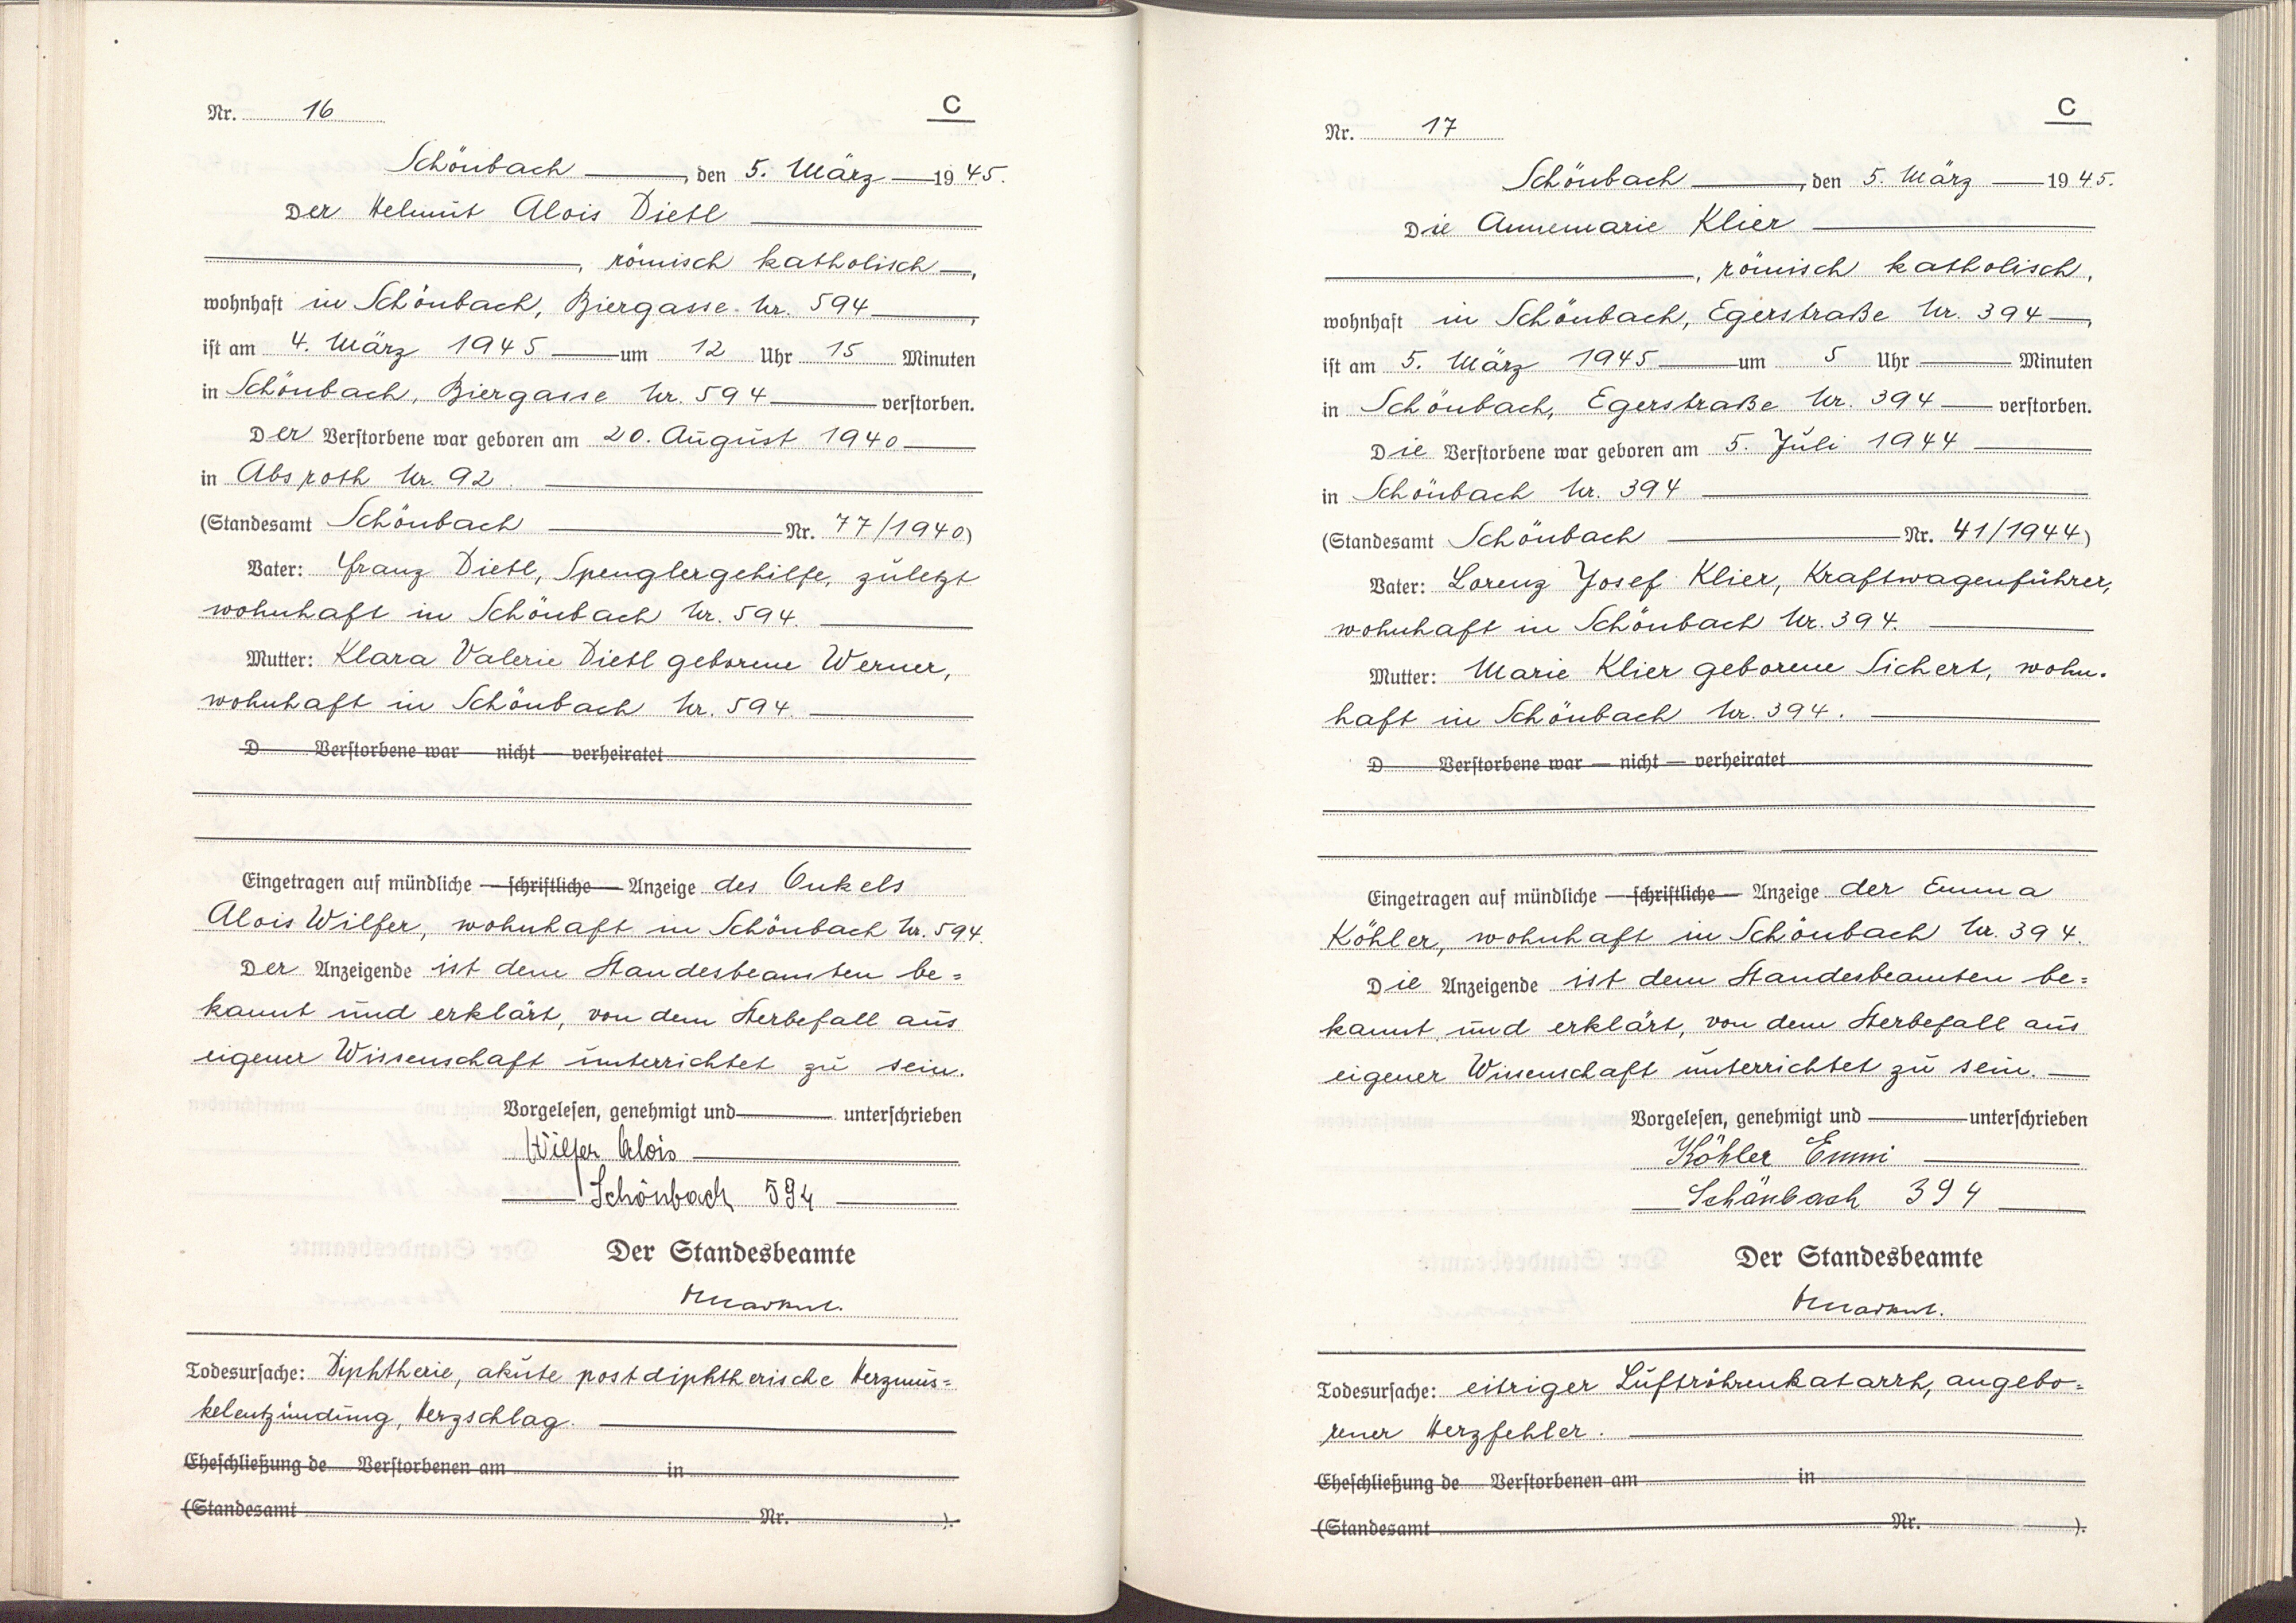 Nr. 16
C
Schönbach, den 5. März 1945.
Der Helmut Alois Dietl
, römisch katholisch,
wohnhaft in Schönbach, Biergasse Nr. 594,
ist am 4. März 1945 um 12 Uhr 15 Minuten
in Schönbach, Biergasse Nr. 594 verstorben.
Der Verstorbene war geboren am 20. August 1940
in Absroth Nr. 92.
(Standesamt Schönbach Nr. 77/1940)
Vater: Franz Dietl, Spenglergehilfe, zuletzt
wohnhaft in Schönbach Nr. 594.
Mutter: Klara Valerie Dietl geborene Werner,
wohnhaft in Schönbach Nr. 594.
D Verstorbene war — nicht — verheiratet
Eingetragen auf mündliche — schriftliche — Anzeige des Onkels
Alois Wilfer, wohnhaft in Schönbach Nr. 594.
Der Anzeigende ist dem Standesbeamten be=
kannt und erklärt, von dem Sterbefall aus
eigener Wissenschaft unterrichtet zu sein.
Vorgelesen, genehmigt und unterschrieben
Wilfer Alois
Schönbach 594
Der Standesbeamte
Todesursache: Diphtherie, akute postdiphtherische Herzmus=
kelentzündung, Herzschlag.
Eheschließung de Verstorbenen am in
(Standesamt Nr. ).
Nr. 17
C
Schönbach, den 5. März 1945.
Die Annemarie Klier
, römisch katholisch,
wohnhaft in Schönbach, Egerstraße Nr. 394,
ist am 5. März 1945 um 5 Uhr Minuten
in Schönbach, Egerstraße Nr. 394 verstorben.
Die Verstorbene war geboren am 5. Juli 1944
in Schönbach Nr. 394
(Standesamt Schönbach Nr. 41/1944)
Vater: Lorenz Josef Klier, Kraftwagenführer,
wohnhaft in Schönbach Nr. 394.
Mutter: Marie Klier geborene Sichert, wohn-
haft in Schönbach Nr. 394.
D Verstorbene war — nicht — verheiratet
Eingetragen auf mündliche — schriftliche — Anzeige der Emma
Köhler, wohnhaft in Schönbach Nr. 394.
Die Anzeigende ist dem Standesbeamten be=
kannt und erklärt, von dem Sterbefall aus
eigener Wissenschaft unterrichtet zu sein.
Vorgelesen, genehmigt und unterschrieben
Köhler Emmi
Schönbach 394
Der Standesbeamte
Todesursache: eitriger Luftröhrenkatarrh, angebo=
rener Herzfehler.
Eheschließung de Verstorbenen am in
(Standesamt Nr. ).